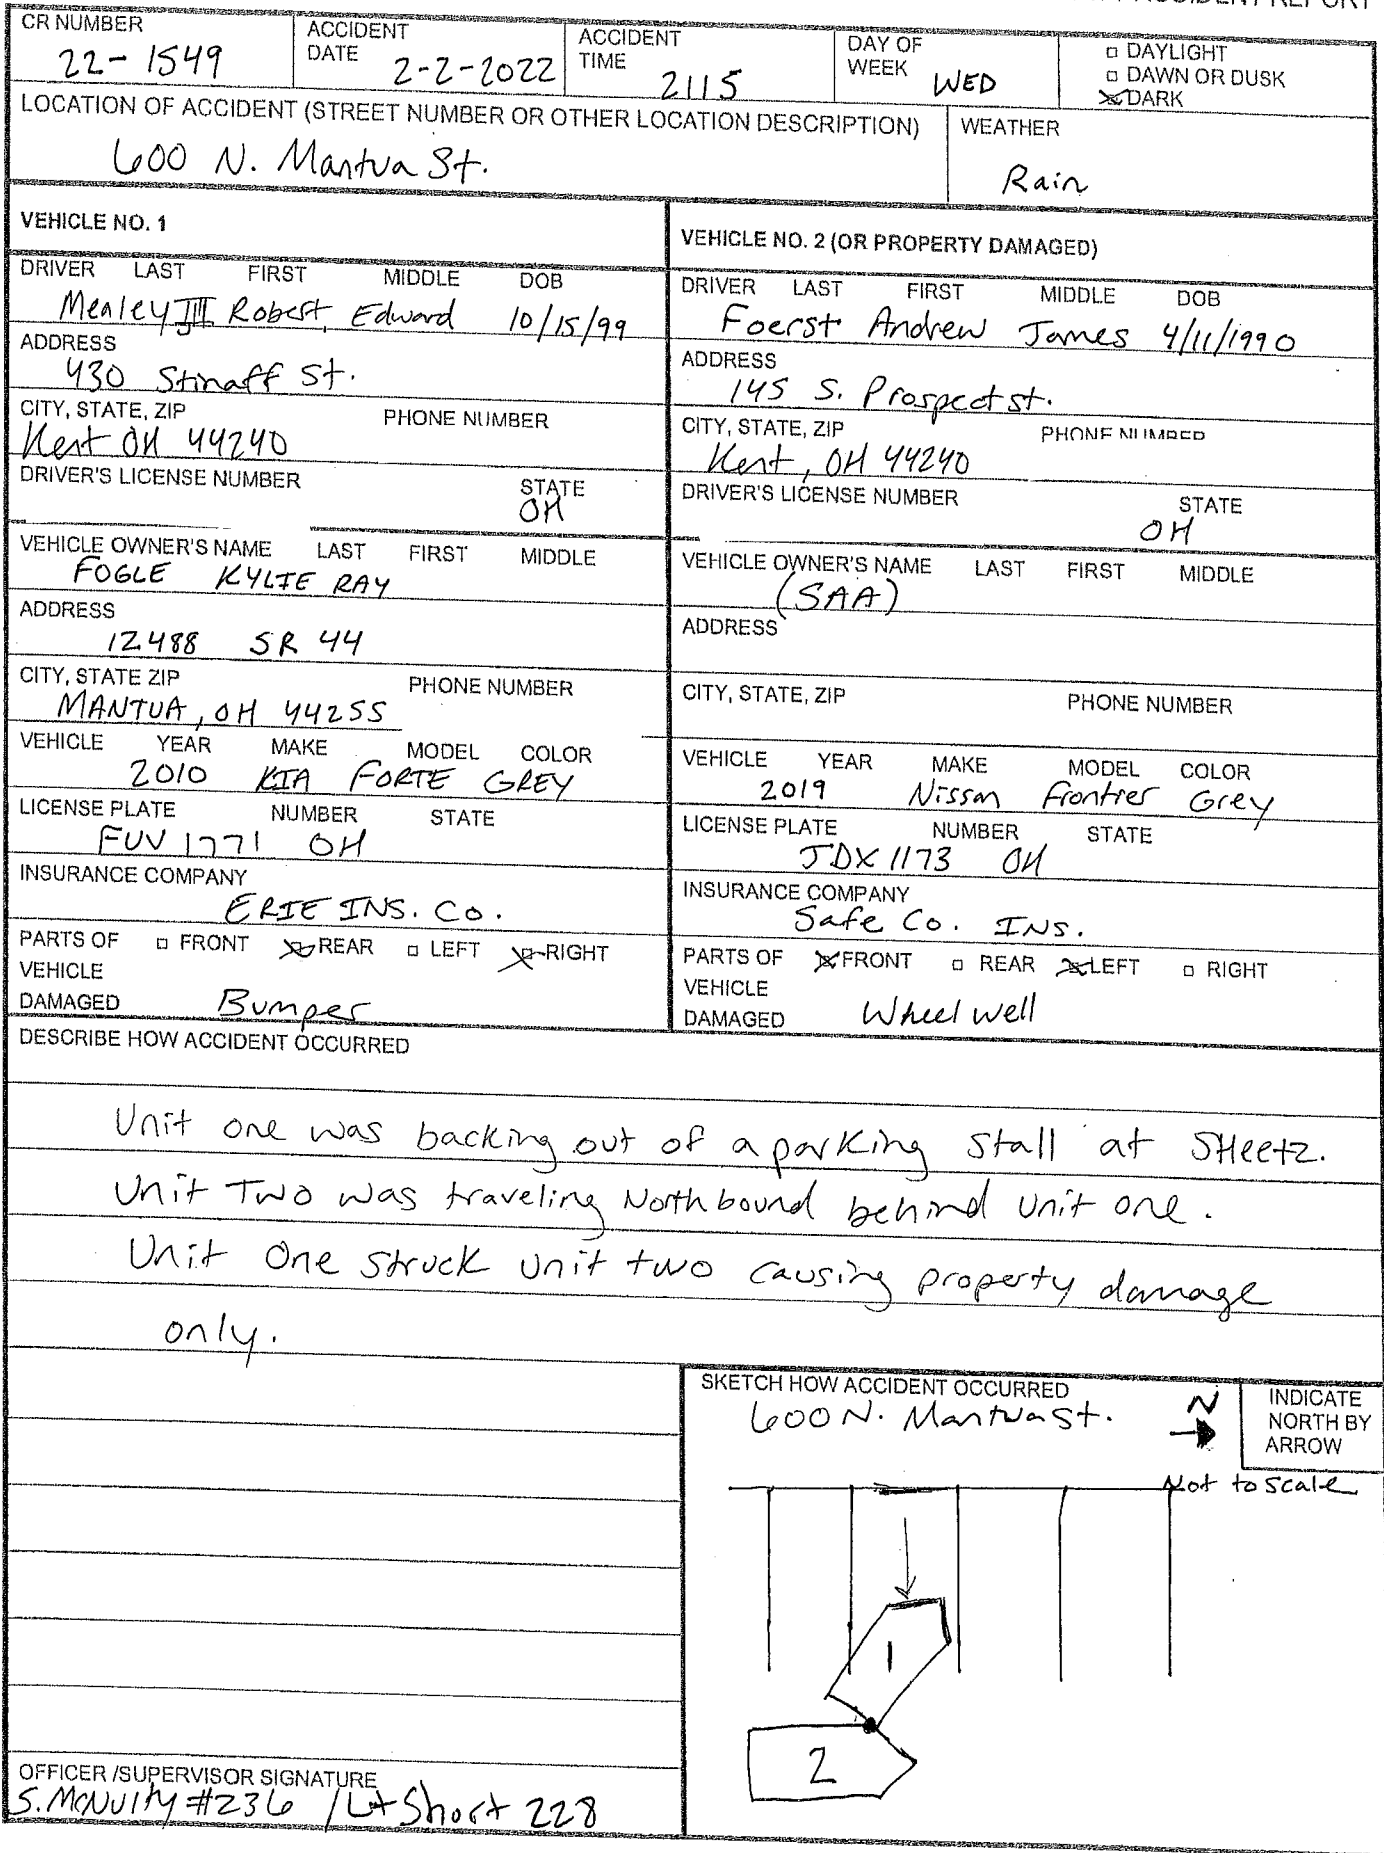 CR NUMBER ACCIDENT DATE ACCIDENT TIME DAY OF WEEK □ DAYLIGHT
22-1549 2-2-2022 2115 WED □ DAWN OR DUSK
DARK
LOCATION OF ACCIDENT (STREET NUMBER OR OTHER LOCATION DESCRIPTION) WEATHER
600 N. Mantua St. Rain
VEHICLE NO. 1
DRIVER LAST FIRST MIDDLE DOB
Mealey III Robert Edward 10/15/99
ADDRESS
430 Stinaff St.
CITY, STATE, ZIP PHONE NUMBER
Kent OH 44240
DRIVER'S LICENSE NUMBER STATE
OH
VEHICLE OWNER'S NAME LAST FIRST MIDDLE
FOGLE KYLIE RAY
ADDRESS
12488 SR 44
CITY, STATE ZIP PHONE NUMBER
MANTUA, OH 44255
VEHICLE YEAR MAKE MODEL COLOR
2010 KIA FORTE GREY
LICENSE PLATE NUMBER STATE
FUV 1771 OH
INSURANCE COMPANY
ERIE INS. Co.
PARTS OF □ FRONT REAR □ LEFT RIGHT
VEHICLE
DAMAGED Bumper
VEHICLE NO. 2 (OR PROPERTY DAMAGED)
DRIVER LAST FIRST MIDDLE DOB
Foerst Andrew James 4/11/1990
ADDRESS
145 S. Prospect st.
CITY, STATE, ZIP PHONE NUMBER
Kent, OH 44240
DRIVER'S LICENSE NUMBER STATE
OH
VEHICLE OWNER'S NAME LAST FIRST MIDDLE
(SAA)
ADDRESS
CITY, STATE, ZIP PHONE NUMBER
VEHICLE YEAR MAKE MODEL COLOR
2019 Nissan Frontier Grey
LICENSE PLATE NUMBER STATE
JDX 1173 OH
INSURANCE COMPANY
Safe Co. INS.
PARTS OF FRONT □ REAR LEFT □ RIGHT
VEHICLE
DAMAGED Wheel well
DESCRIBE HOW ACCIDENT OCCURRED
Unit one was backing out of a parking stall at SHeetz.
Unit Two was traveling Northbound behind unit one.
Unit One struck unit two causing property damage
only.
SKETCH HOW ACCIDENT OCCURRED
600 N. Mantua St. N
INDICATE
NORTH BY
ARROW
Not to scale
1
2
OFFICER /SUPERVISOR SIGNATURE
S. McNulty #236 / Lt Short 228